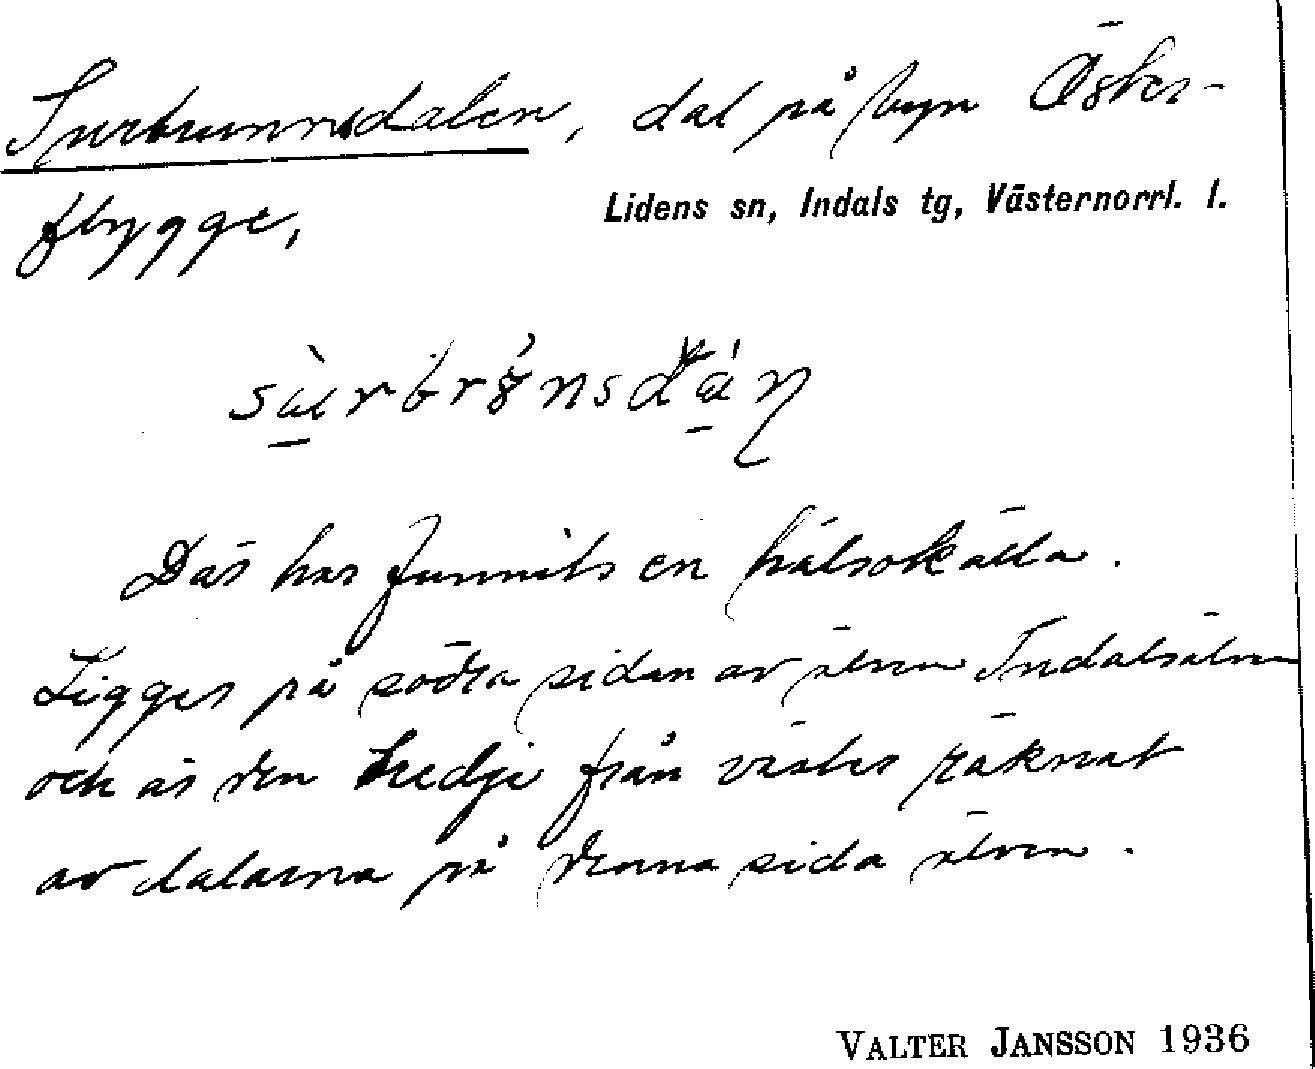 Surbrunnsdalen, dal på byn Öster-
flygge,
Lidens sn, Indals tg, Västernorrl. l.
Där har funnits en hälsokälla.
Ligger på södra sidan av älven Indalsälven
och är den tredje från väster räknat
av dalarna på denna sida älven.
VALTER JANSSON 1936